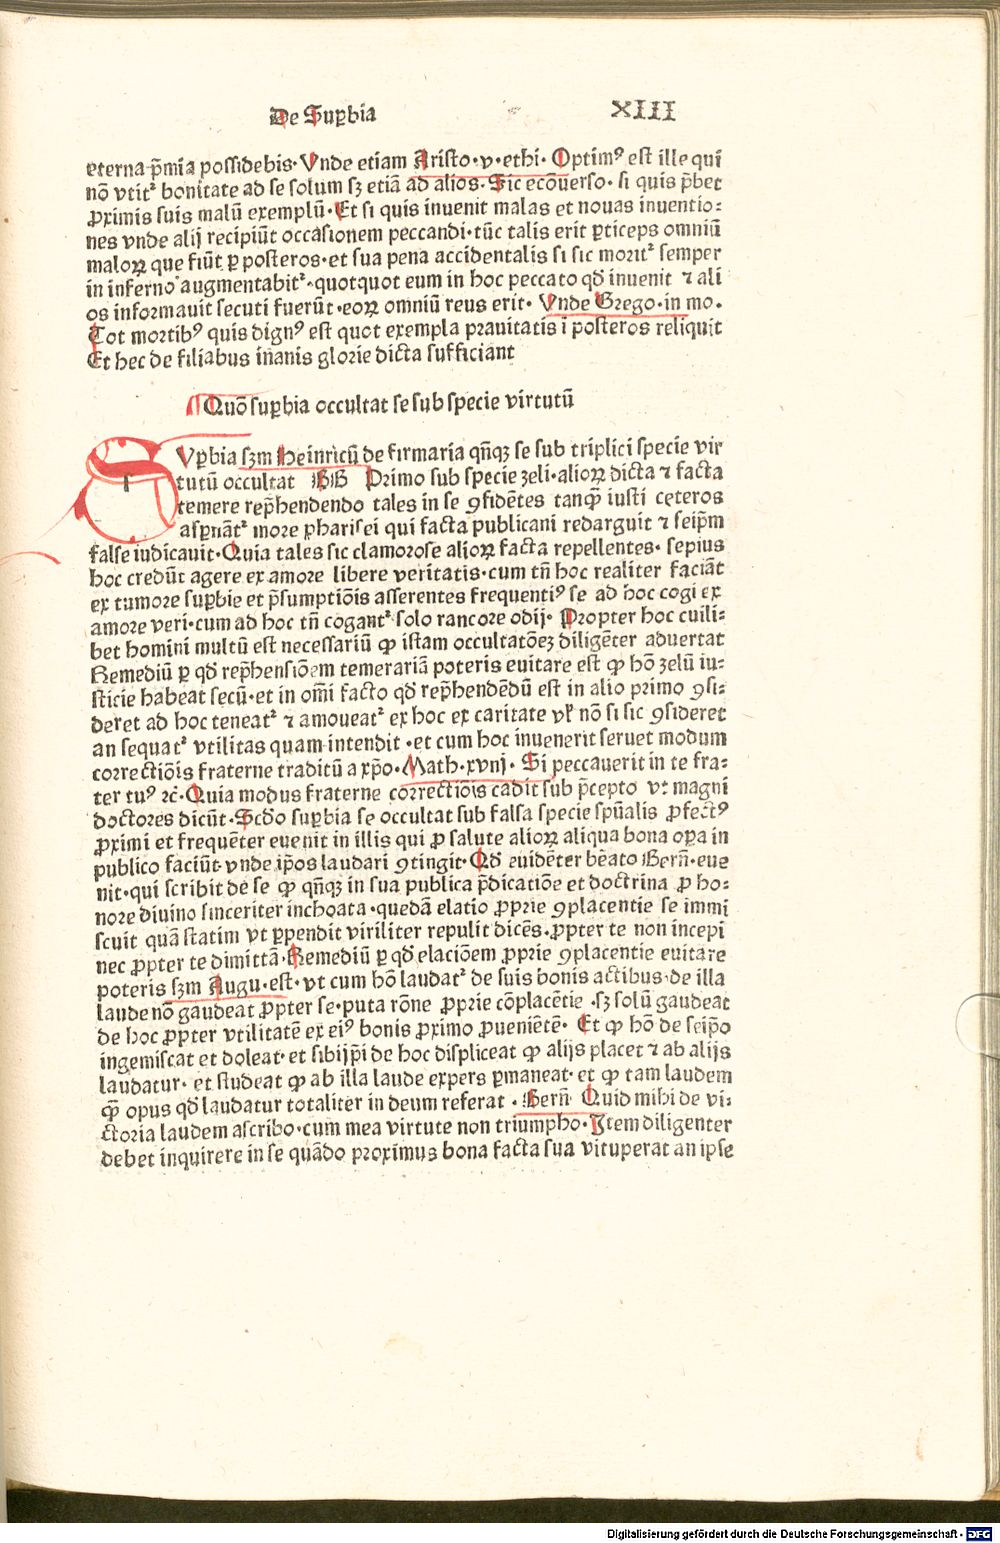 De Suꝑbia XIII
eterna p̄mia possidebis· Vnde etiam Aristo·v·ethi· Optimꝰ est ille qui
nō vtit᷑ bonitate ad se solum sꝫ etiā ad alios· Sic ecōuerso· si quis p̄bet
ꝓximis suis malū exemplū· Et si quis inuenit malas et nouas inuentio⸗
nes vnde alij recipiūt occasionem peccandi· tūc talis erit ꝑticeps omniū
maloꝝ que fiūt ꝑ posteros· et sua pena accidentalis si sic morit᷑ semper
in inferno augmentabit᷑· quotquot eum in hoc peccato qd̄ inuenit ⁊ ali
os informauit secuti fuerūt· eoꝝ omniū reus erit· Vnde Grego· in mo·
Tot mortibꝰ quis dignꝰ est quot exempla prauitatis ī posteros reliquit
Et hec de filiabus inanis glorie dicta sufficiant
Quō suꝑbia occultat se sub specie virtutū
SVꝑbia sꝫm Heinricū de firmaria qn̄qꝫ se sub triplici specie vir
tutū occultat BB Primo sub specie zeli· alioꝝ dicta ⁊ facta
temere rep̄hendendo tales in se ꝯfidētes tanꝙ̄ iusti ceteros
aspnāt᷑ more pharisei qui facta publicani redarguit ⁊ seip̄m
false iudicauit· Quia tales sic clamorose alioꝝ facta repellentes· sepius
hoc credūt agere ex amore libere veritatis· cum tn̄ hoc realiter faciāt
ex tumore suꝑbie et p̄sumptiōis asserentes frequentiꝰ se ad hoc cogi ex
amore veri· cum ad hoc tn̄ cogant᷑ solo rancore odij· Propter hoc cuili⸗
bet homini multū est necessariū ꝙ istam occultatōeꝫ diligēter aduertat
Remediū ꝑ qd̄ rep̄hensiōem temerariā poteris euitare est ꝙ hō zelū iu⸗
sticie habeat secū· et in om̄i facto qd̄ rep̄hendēdū est in alio primo ꝯsi⸗
deret ad hoc teneat᷑ ⁊ amoueat᷑ ex hoc ex caritate vl̓ nō si sic ꝯsideret
an sequat᷑ vtilitas quam intendit· et cum hoc inuenerit seruet modum
correctiōis fraterne traditū a xp̄o· Math·xvnj· Si peccauerit in te fra⸗
ter tuꝰ ⁊c̄· Quia modus fraterne correctiōis cadit sub p̄cepto vt magni
doctores dicūt· Scd̄o suꝑbia se occultat sub falsa specie spūalis ꝓfectꝰ
ꝓximi et frequēter euenit in illis qui ꝓ salute alioꝝ aliqua bona oꝑa in
publico faciūt· vnde ip̄os laudari ꝯtingit· Qd̄ euidēter bēato Bern̄· eue
nit· qui scribit de se ꝙ qn̄qꝫ in sua publica p̄dicatiōe et doctrina ꝓ ho⸗
nore diuino sinceriter inchoata· quedā elatio ꝓprie ꝯplacentie se immi
scuit quā statim vt ꝑpendit viriliter repulit dicēs· ꝓpter te non incepi
nec ꝓpter te dimittā· Remediū ꝑ qd̄ elaciōem ꝓprie ꝯplacentie euitare
poteris sꝫm Augu· est· vt cum hō laudat᷑ de suis bonis actibus· de illa
laude nō gaudeat ꝓpter se· puta rōne ꝓprie cōplacētie· sꝫ solū gaudeat
de hoc ꝓpter vtilitatē ex eiꝰ bonis ꝓximo ꝓueniētē· Et ꝙ hō de seip̄o
ingemiscat et doleat· et sibijp̄i de hoc displiceat ꝙ alijs placet ⁊ ab alijs
laudatur· et studeat ꝙ ab illa laude expers ꝑmaneat· et ꝙ tam laudem
ꝙ̄ opus qd̄ laudatur totaliter in deum referat· Bern̄ Quid mihi de vi⸗
ctoria laudem ascribo· cum mea virtute non triumpho· Item diligenter
debet inquirere in se quādo proximus bona facta sua vituperat an ipse
Digitalisierung gefördert durch die Deutsche Forschungsgemeinschaft - DFG